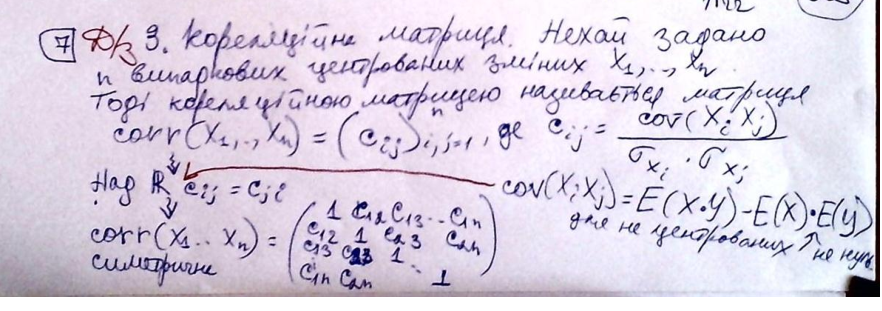 7 Д/з 3. Кореляційна матриця. Нехай задано
n випадкових центрованих зміних X₁,.., Xₙ.
Тоді кореляційною матрицею називається матриця
corr(X₁,.., Xₙ) = (cᵢⱼ)ⁿᵢ,ⱼ₌₁, де cᵢⱼ = cov(Xᵢ Xⱼ) / σₓᵢ · σₓⱼ
Над ℝ cᵢⱼ = cⱼᵢ cov(Xᵢ Xⱼ) = E(X·Y) - E(X)·E(Y)
для не центрованих ↑ не нуль
corr(X₁.. Xₙ) = ( 1 c₁₂ c₁₃ ... c₁ₙ
симетрична c₁₂ 1 c₂₃ c₂ₙ
c₁₃ c₂₃ 1
c₁ₙ c₂ₙ 1 )